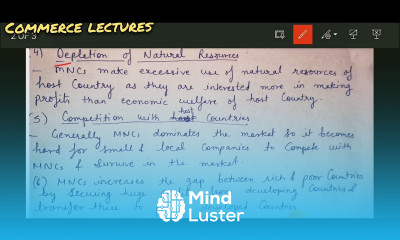 COMMERCE LECTURES
2 of 3
4) Depletion of Natural Resources
- MNCs make excessive use of natural resources of
host Country as they are interested more in making
profits than economic welfare of host Country.
5) Competition with host Countries
- Generally MNCs dominates the market so it becomes
hard for small & local companies to Compete with
MNCs & survive in the market.
(6) MNCs increases the gap between rich & poor Countries
by securing huge from developing Countries &
transfer these to developed Countries
Mind
Luster